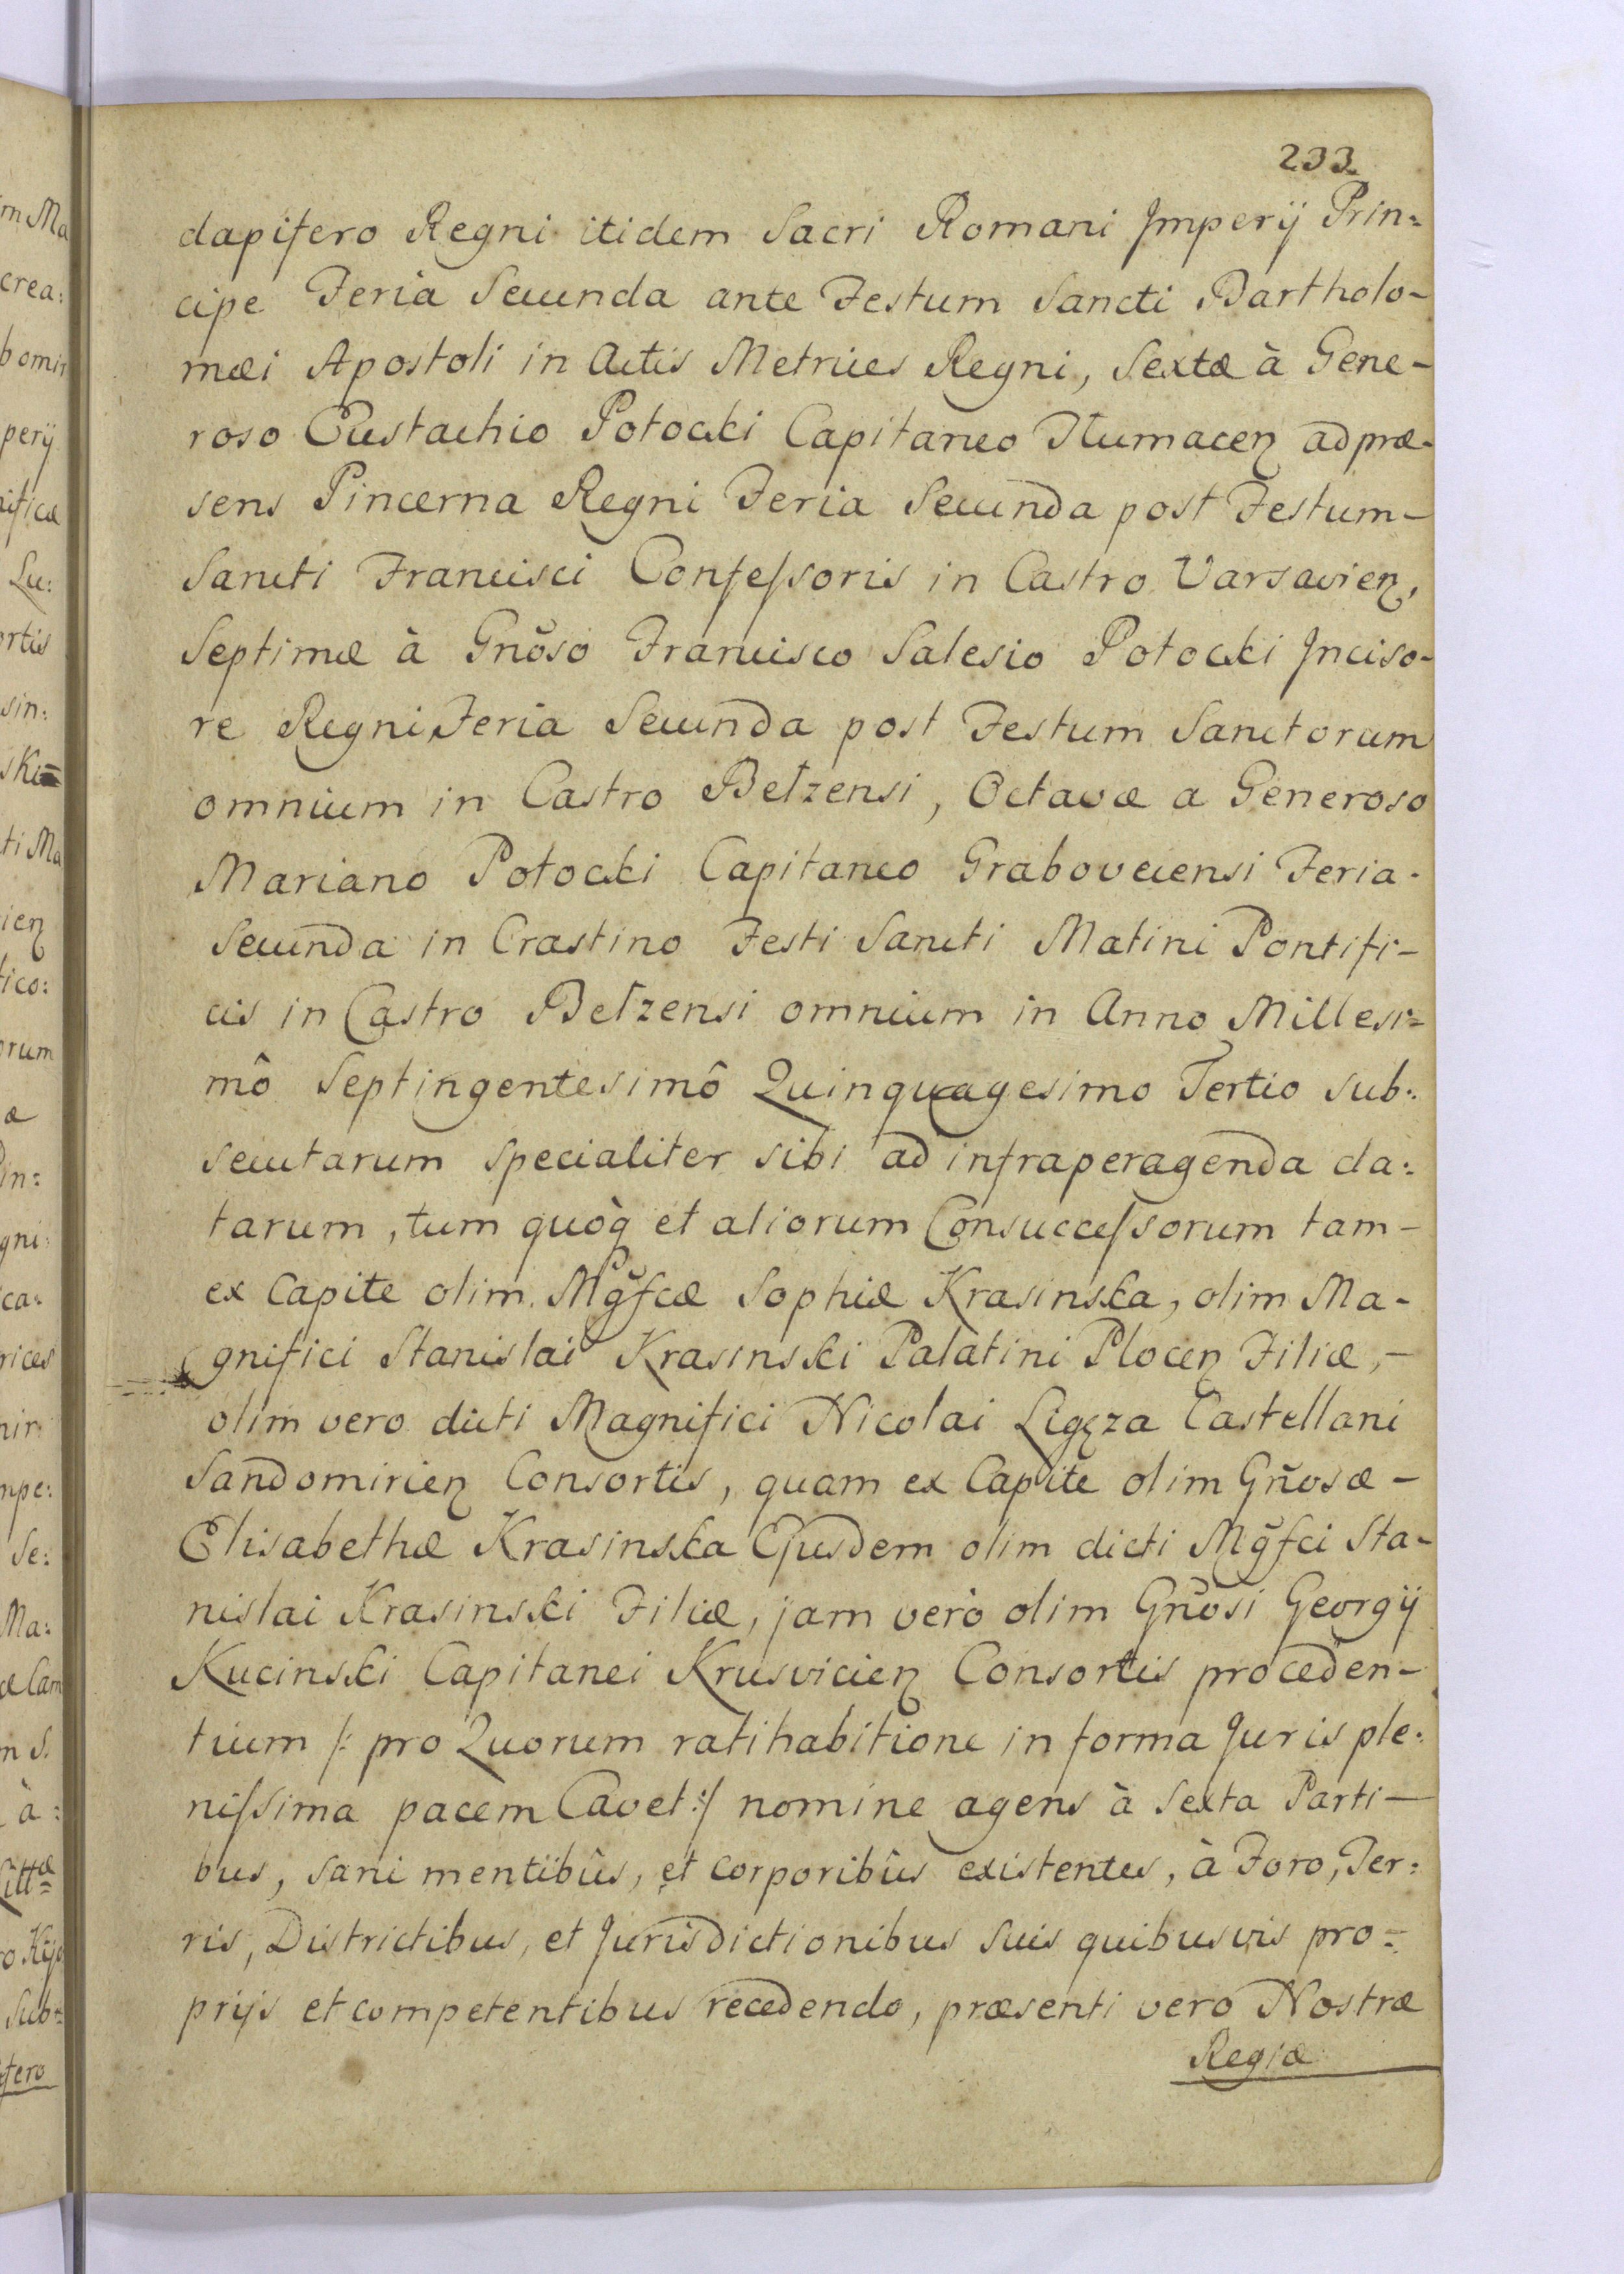 233.
dapifero Regni itidem Sacri Romani Imperij Prin=
cipe Feria Secunda ante Festum Sancti Bartholo-
mæi Apostoli in Actis Metrices Regni, Sextæ à Gene-
roso Eustachio Potocki Capitaneo Tłumacen̄ ad præ-
sens Pincerna Regni Feria Secunda post Festum-
Sancti Francisci Confeſsoris in Castro Varsavien̄,
Septimæ à Gnoso Francisco Salesio Potocki Inciso-
re Regni Feria Secunda post Festum Sanctorum
omnium in Castro Bełzensi, Octavæ a Generoso
Mariano Potocki Capitaneo Graboveciensi Feria-
Secunda in Crastino Festi Sancti Matini Pontifi-
cis in Castro Bełzensi omnium in Anno Millesi=
mô Septingentesimô Quinquagesimo Tertio sub:
secutarum specialiter sibi ad infraperagenda da:
tarum, tum quòq et aliorum Consucceſsorum tam-
ex Capite olim Mg̃fcæ Sophiæ Krasinska, olim Ma-
gnifici Stanislai Krasinski Palatini Plocen̄ Filiæ,-
olim vero dicti Magnifici Nicolai Ligęza Castellani
Sandomirien̄ Consortis, quam ex Capite olim Gñosæ-
Elisabethæ Krasinska Ejusdem olim dicti Mg̃fci Sta-
nislai Krasinski Filiæ, jam verò olim Gñosi Georgij
Kucinski Capitanei Krusvicien̄ Consortis proceden-
tium /: pro Quorum ratihabitione in forma Juris ple:
niſsima pacem Cavet :/ nomine agens à Sexta Parti-
bus, sani mentibûs, et corporibûs existentes, à Foro, Ter:
ris, Districtibus, et Jurisdictionibus suis quibusvis pro=
prijs et competentibus recedendo, præsenti vero Nostræ
Regiæ